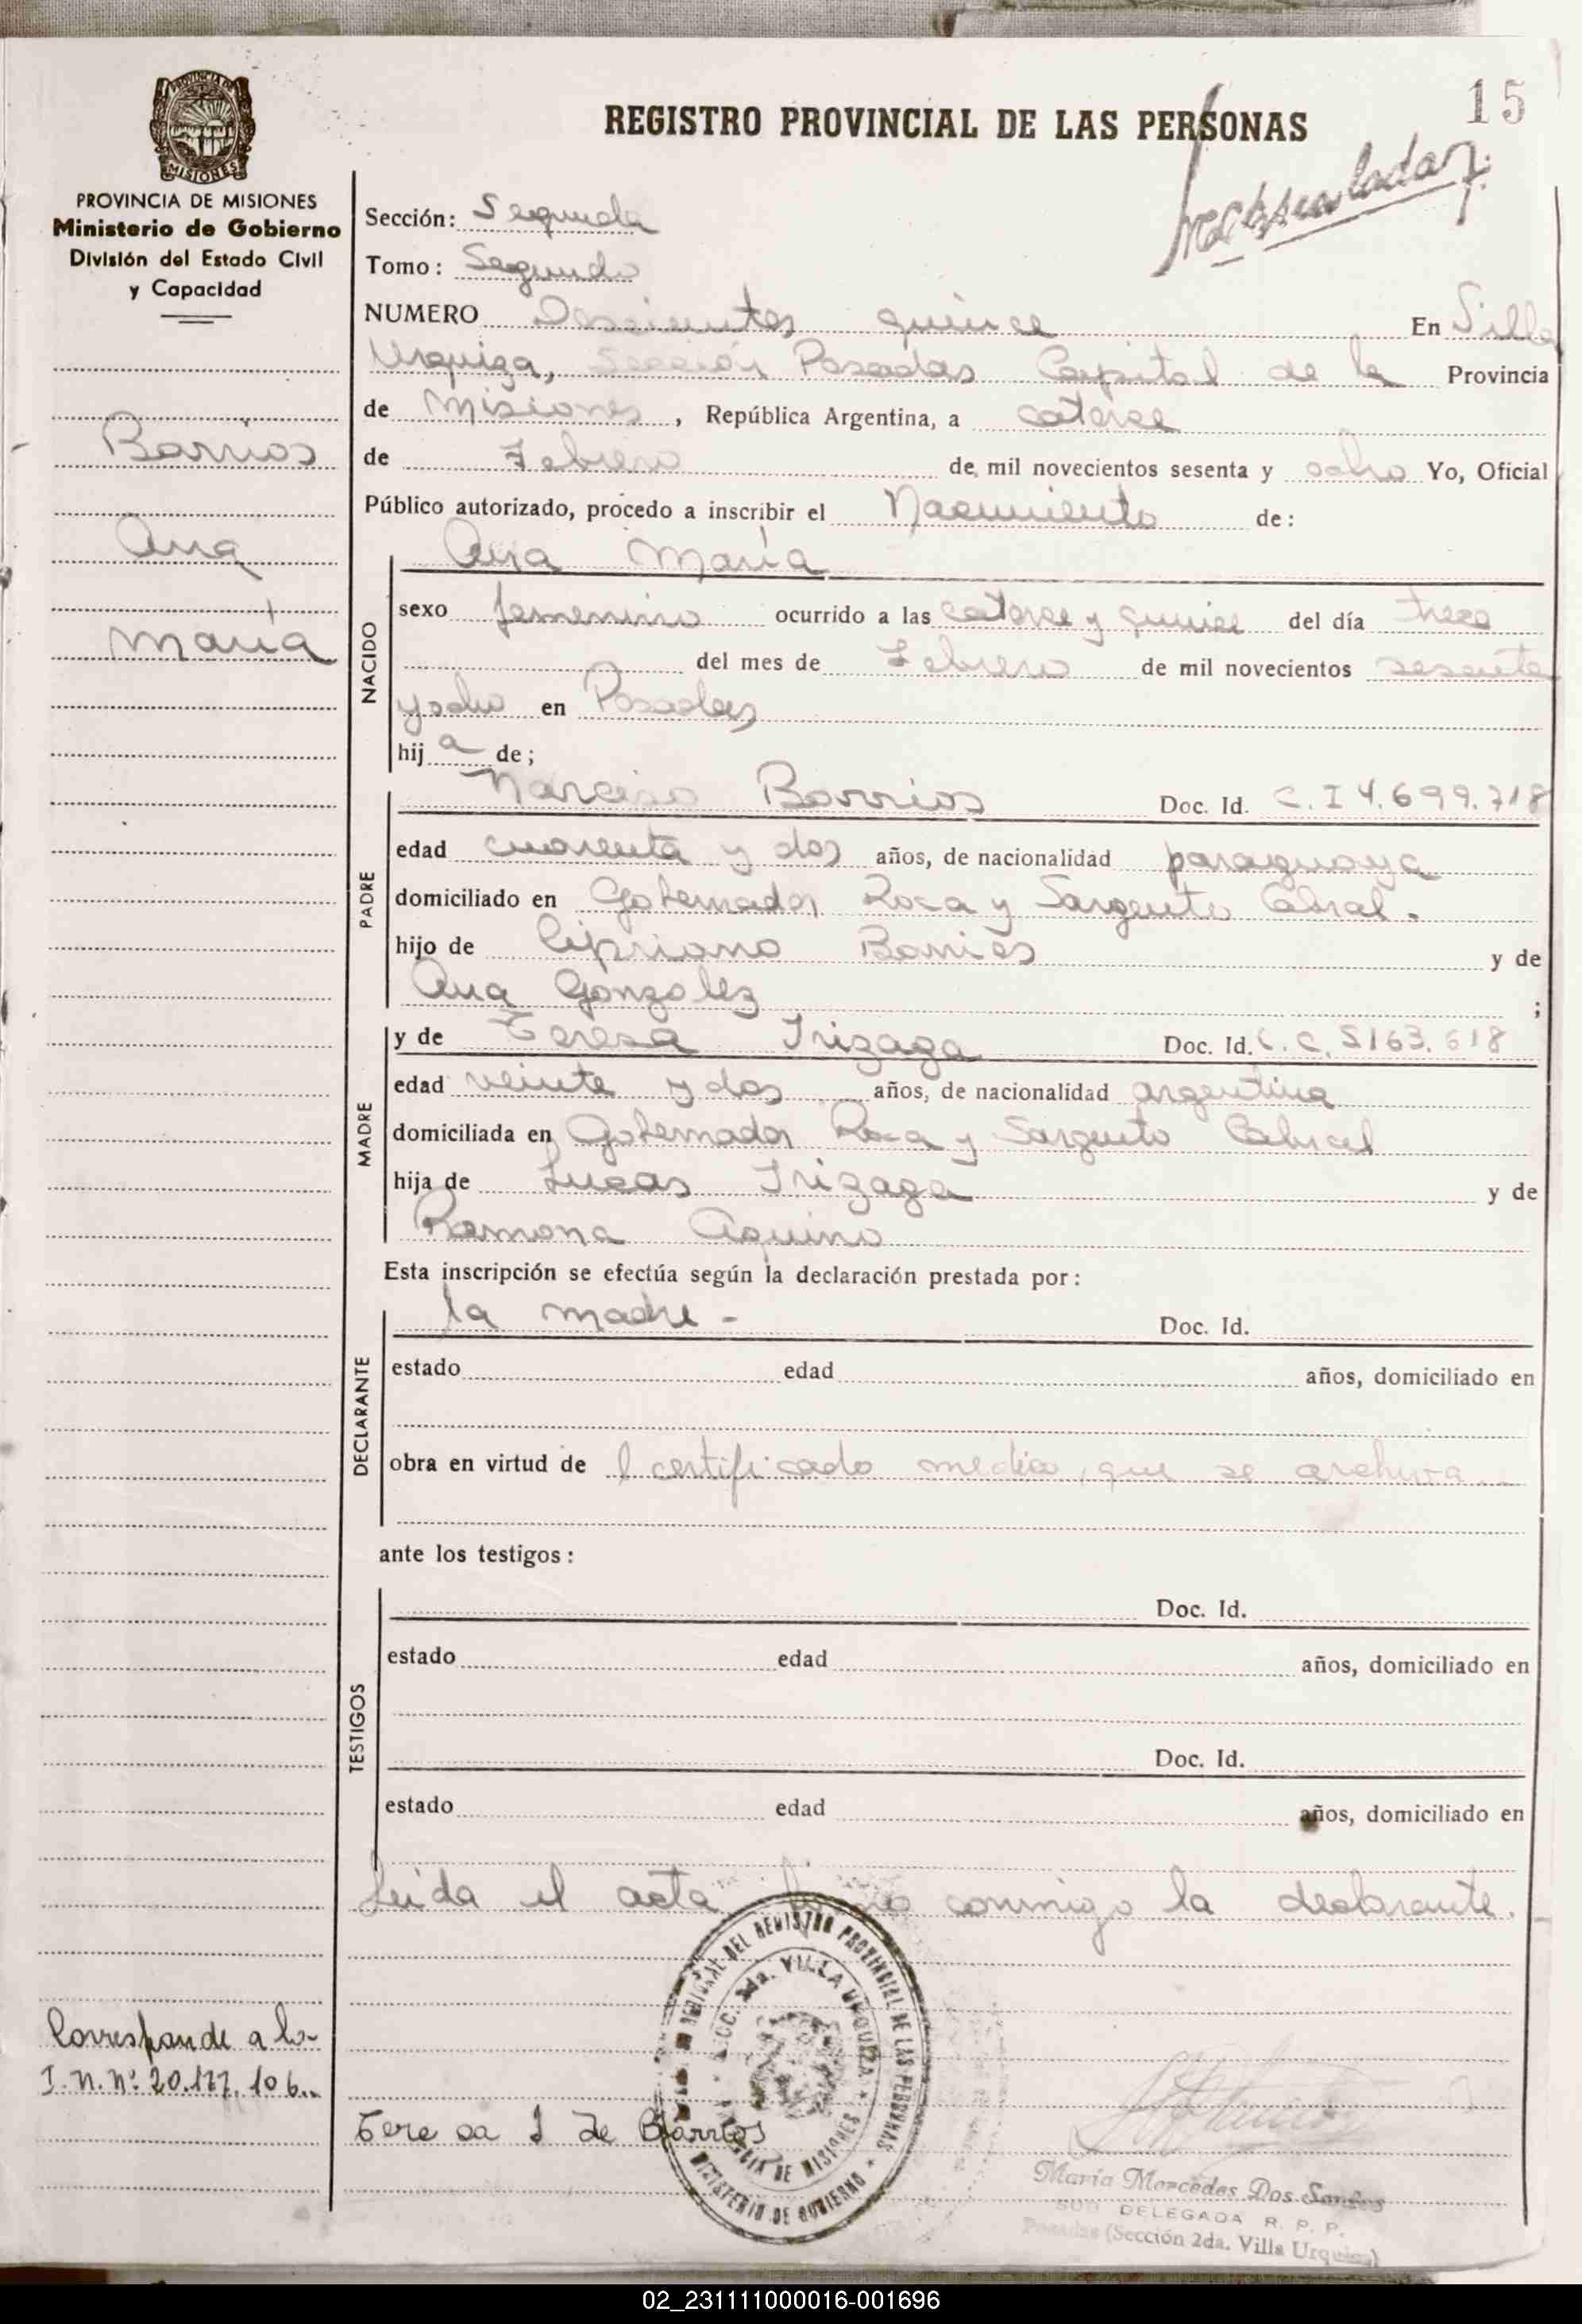 15
REGISTRO PROVINCIAL DE LAS PERSONAS
PROVINCIA DE MISIONES
MISIONES
PROVINCIA DE MISIONES
Ministerio de Gobierno
División del Estado Civil
y Capacidad
Barrios
Ana
María
Sección: Segunda
Tomo: Segundo
NUMERO Doscientos quince En Villa
Urquiza, Sección Posadas Capital de la Provincia
de Misiones, República Argentina, a catorce
de Febrero de mil novecientos sesenta y ocho Yo, Oficial
Público autorizado, procedo a inscribir el Nacimiento de:
NACIDO
Ana María
sexo femenino ocurrido a las catorce y quince del día trece
del mes de Febrero de mil novecientos sesenta
y ocho en Posadas
hija de;
PADRE
Narciso Barrios Doc. Id. C. I 4.699.718
edad cuarenta y dos años, de nacionalidad paraguaya
domiciliado en Gobernador Roca y Sargento Cabral.
hijo de Cipriano Barrios y de
Ana Gonzalez ;
MADRE
y de Teresa Irizaga Doc. Id. L. C. 5163.618
edad veinte y dos años, de nacionalidad argentina
domiciliada en Gobernador Roca y Sargento Cabral
hija de Lucas Irizaga y de
Ramona Aquino
Esta inscripción se efectúa según la declaración prestada por:
DECLARANTE
la madre - Doc. Id.
estado edad años, domiciliado en
obra en virtud de l certificado médico, que se archiva.
ante los testigos:
TESTIGOS
Doc. Id.
estado edad años, domiciliado en
Doc. Id.
estado edad años, domiciliado en
Leida el acta firma conmigo la declarante.
REGIONAL DEL REGISTRO PROVINCIAL DE LAS PERSONAS
SECC. 2da. VILLA URQUIZA
PROVINCIA DE MISIONES
MINISTERIO DE GOBIERNO
Corresponde a la
I. N. Nº: 20.177.106..
Teresa I de Barrios
María Mercedes Dos Santos
SUB DELEGADA R. P. P.
Posadas (Sección 2da. Villa Urquiza)
02_231111000016-001696